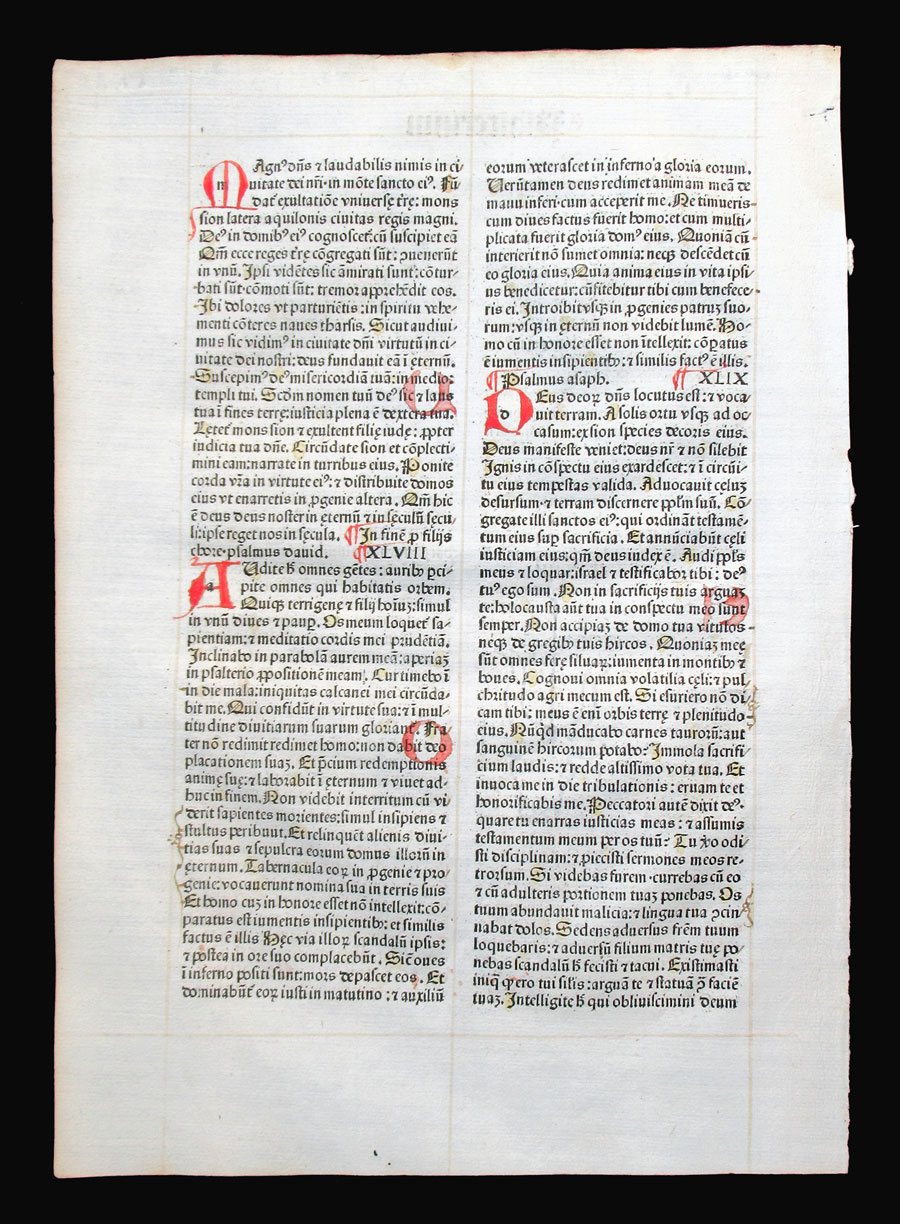 MAgnꝰ dñs ⁊ laudabilis nimis in ci⸗
uitate dei nr̃i·in mõte sancto eiꝰ. Fũ
dat᷑ exultatiõe vniuersę tr̃ę: mons
sion latera aquilonis ciuitas regis magni.
Deꝰ in domibꝰ eiꝰ cognoscet᷑:cũ suscipiet eã
Qm̃ ecce reges tr̃ę cõgregati sũt: ꝯuenerũt
in vnũ. Ipsi vidẽtes sic ãmirati sunt:cõtur⸗
bati sũt·cõmoti sũt: tremor apprehẽdit eos.
Ibi dolores vt parturiẽtis:in spiritu vehe⸗
menti cõteres naues tharsis. Sicut audiui⸗
mus sic vidimꝰ in ciuitate dñi virtutũ in ci⸗
uitate dei nostri:deus fundauit eã ĩ ęternũ.
Suscepimꝰ deꝰ misericordiã tuã:in medio
templi tui. Scd̃m nomen tuũ deꝰ sic ⁊ laus
tua ĩ fines terre:iusticia plena ẽ dextera tua.
Lętet᷑ mons sion ⁊ exultent filię iudę: ꝓpter
iudicia tua dñe. Circũdate sion et cõplecti⸗
mini eam:narrate in turribus eius. Ponite
corda vr̃a in virtute eiꝰ: ⁊ distribuite domos
eius vt enarretis in ꝓgenie altera. Qm̃ hic
ẽ deus deus noster in ęternũ ⁊ in sęculũ sęcu
li:ipse reget nos in sęcula. ¶In finẽ ꝓ filijs
chore·psalmus dauid. ¶XLVIII
AUdite hę omnes gẽtes: auribꝰ ꝑci⸗
pite omnes qui habitatis orbem.
Quiqꝫ terrigenę ⁊ filij hoĩuꝫ:simul
in vnũ diues ⁊ paup̱. Os meum loquet᷑ sa⸗
pientiam:⁊ meditatio cordis mei prudẽtiã.
Inclinabo in parabolã aurem meã:aperiaꝫ
in psalterio ꝓpositionẽ meam. Cur timebo ĩ
in die mala:iniquitas calcanei mei circũda⸗
bit me. Qui confidũt in virtute sua:⁊ ĩ mul⸗
titudine diuitiarum suarum gloriant᷑. Fra
ter nõ redimit redimet homo:non dabit deo
placationem suaꝫ. Et p̃cium redemptionis
animę suę:⁊ laborabit ĩ ęternum ⁊ viuet ad⸗
huc in finem. Non videbit interritum cũ vi
derit sapientes morientes:simul insipiens ⁊
stultus peribunt. Et relinquẽt alienis diui⸗
tias suas ⁊ sepulcra eorum domus illorũ in
ęternum. Tabernacula eoꝝ in ꝓgenie ⁊ pro⸗
genie:vocauerunt nomina sua in terris suis
Et homo cuꝫ in honore esset nõ intellexit:cõ⸗
paratus est iumentis insipientibꝰ: et similis
factus ẽ illis Hęc via illoꝝ scandalũ ipsis:
⁊ postea in ore suo complacebũt. Sic̃ oues
ĩ inferno positi sunt:mors depascet eos. Et
dominabũt᷑ eoꝝ iusti in matutino : ⁊ auxiliũ
eorum veterascet in inferno a gloria eorum.
Uerũtamen deus redimet animam meã de
manu inferi·cum acceperit me. Ne timueris
cum diues factus fuerit homo:et cum multi⸗
plicata fuerit gloria domꝰ eius. Quoniã cũ
interierit nõ sumet omnia: neqꝫ descẽdet cũ
eo gloria eius. Quia anima eius in vita ipsi⸗
us benedicetur:cũfitebitur tibi cum benefece⸗
ris ei. Introibit vsqꝫ in ꝓgenies patruꝫ suo⸗
rum:vsqꝫ in ęternũ non videbit lumẽ. Ho⸗
mo cũ in honore esset non ĩtellexit: cõꝑatus
ẽ iumentis insipientibꝰ:⁊ similis factꝰ ẽ illis.
¶Psalmus asaph. ¶XLIX
DEus deoꝝ dñs locutus est:⁊ voca
uit terram. A solis ortu vsqꝫ ad oc⸗
casum:ex sion species decoris eius.
Deus manifeste veniet:deus nr̃ ⁊ nõ silebit
Ignis in cõspectu eius exardescet:⁊ ĩ circũi⸗
tu eius tempestas valida. Aduocauit cęluꝫ
desursum·⁊ terram discernere pplm̃ suũ. Cõ⸗
gregate illi sanctos eiꝰ:qui ordinãt testamẽ⸗
tum eius sup̱ sacrificia. Et annũciabũt cęli
iusticiam eius:qm̃ deus iudex ẽ. Audi ppl̃s
meus ⁊ loquar:israel ⁊ testificabor tibi: deꝰ
tuꝰ ego sum. Non in sacrificijs tuis arguaꝫ
te:holocausta aũt tua in conspectu meo sunt
semper. Non accipiaꝫ de domo tua vitulos
neqꝫ de gregibꝰ tuis hircos. Quoniaꝫ meę
sũt omnes ferę siluaꝝ:iumenta in montibꝰ ⁊
boues. Cognoui omnia volatilia cęli:⁊ pul⸗
chritudo agri mecum est. Si esuriero nõ di⸗
cam tibi: meus ẽ enĩ orbis terrę ⁊ plenitudo
eius. Nũqd̓ mãducabo carnes taurorũ:aut
sanguinẽ hircorum potabo: Immola sacrifi⸗
cium laudis:⁊ redde altissimo vota tua. Et
inuoca me in die tribulationis : eruam te et
honorificabis me. Peccatori autẽ dixit deꝰ·
quare tu enarras iusticias meas : ⁊ assumis
testamentum meum per os tuũ: Tu ꝟo odi⸗
sti disciplinam:⁊ ꝓiecisti sermones meos re⸗
trorsum. Si videbas furem·currebas cũ eo
⁊ cũ adulteris portionem tuaꝫ ponebas. Os
tuum abundauit malicia:⁊ lingua tua ꝯcin
nabat dolos. Sedens aduersus frẽm tuum
loquebaris:⁊ aduersũ filium matris tuę po⸗
nebas scandalũ hę fecisti ⁊ tacui. Existimasti
iniqͥ qͫ ero tui silis:arguã te ⁊ statuã ꝯ faciẽ
tuaꝫ. Intelligite hę qui obliuiscimini deum